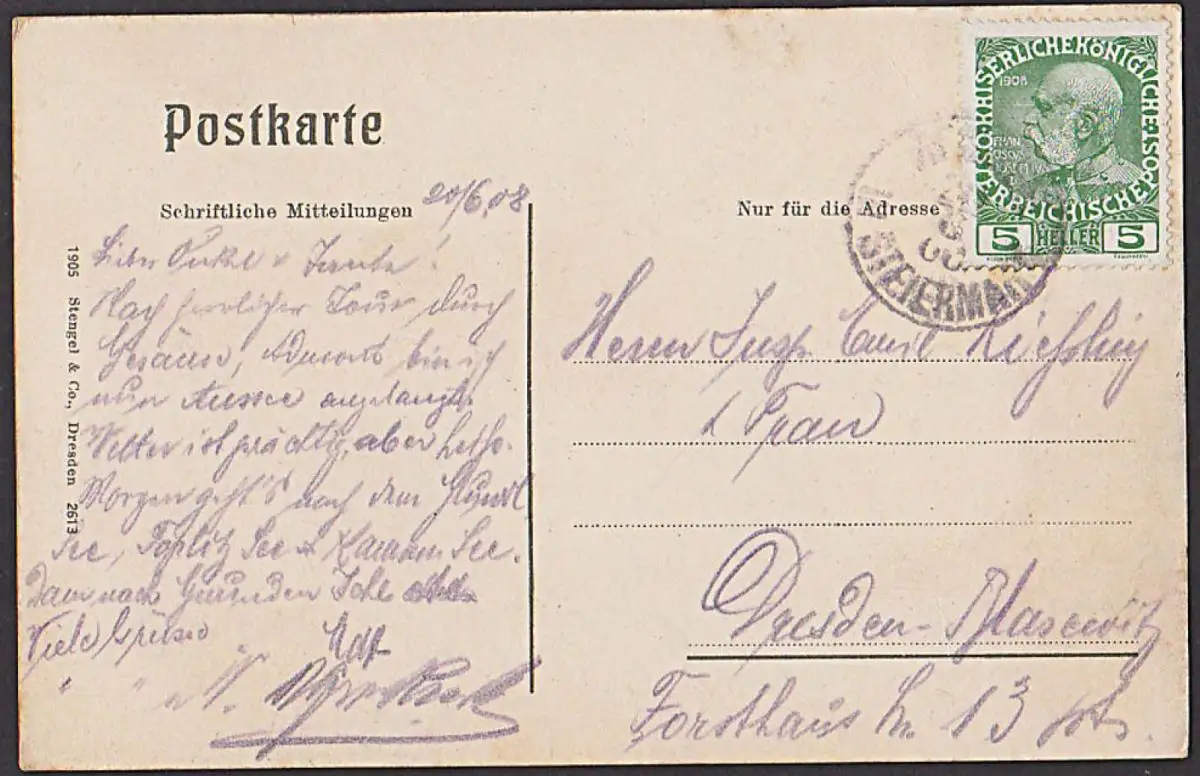 Postkarte
Schriftliche Mitteilungen
20/6.08
Lieber Onkel & Tante!
Nach herrlicher Tour durch
Gesäuse, Admont bin ich
nun Aussee angelangt.
Wetter ist prächtig, aber heiß.
Morgen geht's nach dem Grundl
See, Töplitz See & Kammer See.
Dann nach Gmunden Ischl
Viele Grüsse
1905 Stengel & Co., Dresden 2613
Nur für die Adresse
KAISERLICHE KÖNIGLICHE ÖSTERREICHISCHE POST
1908
5 HELLER 5
STEIERMARK
Herrn Insp. Emil Kießling
& Frau
Dresden-Blasewitz
Forsthaus 13